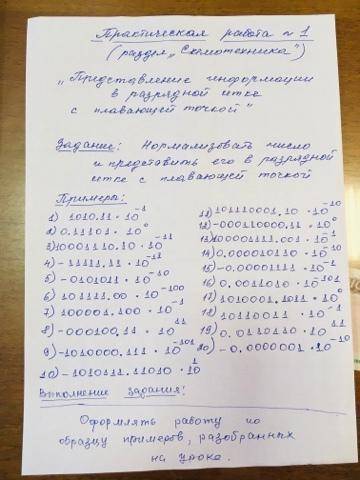 Практическая работа №1
(раздел „Схемотехника")
„Представление информации
в разрядной сетке
с плавающей точкой"
Задание: Нормализовать число
и представить его в разрядной
сетке с плавающей точкой
Примеры:
1) 1010.11 · 10⁻¹
2) 0.11101 · 10⁰
3) 10001110.10 · 10⁻¹¹
4) -11111.11 · 10¹¹
5) -0101011 · 10⁻¹⁰
6) 101111.00 · 10⁻¹⁰⁰
7) 100001.100 · 10⁻¹
8) -000100.11 · 10¹¹
9) -1010000.111 · 10⁻¹⁰¹
10) -1010111.11010 · 10¹
11) 101110001.10 · 10⁻¹⁰
12) -000110000.11 · 10⁰
13) 10001111.001 · 10⁻¹
14) 0.000010110 · 10⁻¹⁰
15) -0.0001111 · 10⁻¹
16) 0.0011010 · 10⁻¹⁰¹
17) 1010001.1011 · 10⁰
18) 10110011 · 10⁻¹
19) 0.0110110 · 10¹¹
20) -0.0000001 · 10⁻¹⁰
Выполнение задания:
Оформлять работу по
образцу примеров, разобранных
на уроке.